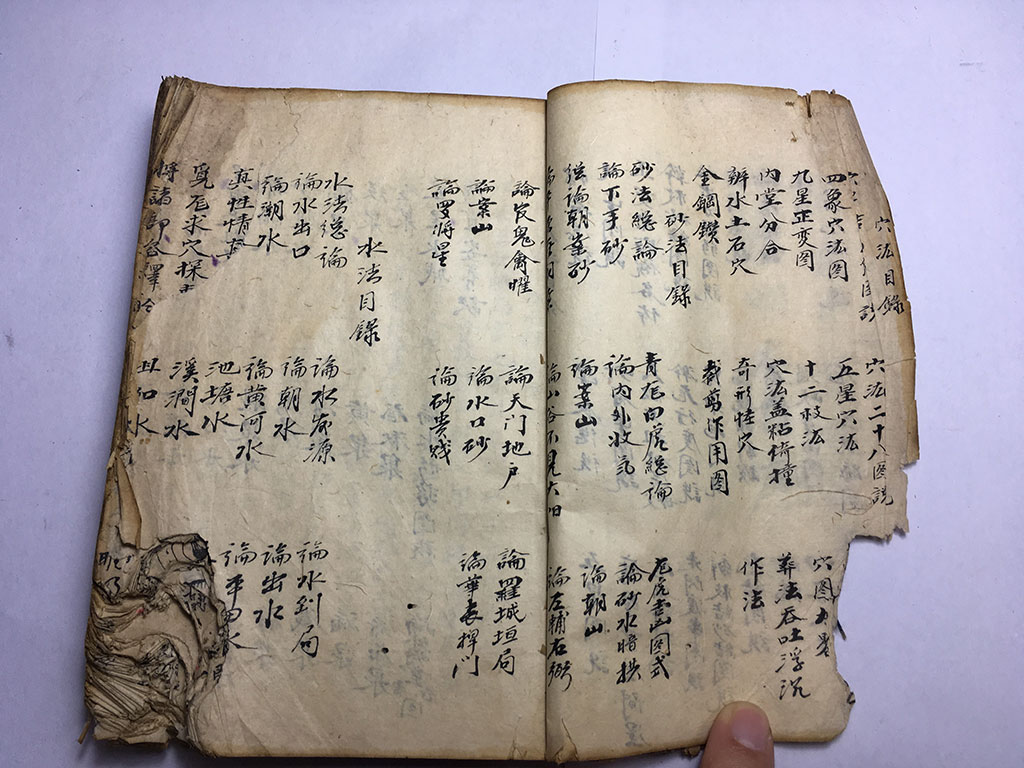 穴法目錄
穴法二十八图説
四象穴法图
五星穴法
穴图
九星正变图
十二枝法
葬法吞吐浮沉
内堂分合
穴法盖粘倚撞
作法
辨水土石穴
奇形怪穴
金鋼鑽
裁剪作用图
砂法目録
砂法總論
青龙白虎總論
龙虎
图式
論下手砂
論内外收氣
論砂水暗拱
総論朝案砂
論案山
論朝山
論左輔右弼
論官鬼禽曜
論天門地户
論羅城垣局
論案山
論水口砂
論華表捍門
論
將星
論砂貴贱
水法目錄
水法總論
論水
源
論水到局
論水出口
論朝水
論出水
論潮水
論黄河水
論平田水
真性情
池塘水
覓龙求穴探
溪澗水